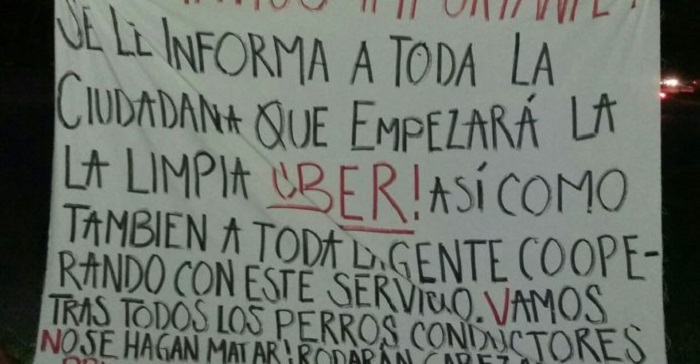 IMPORTANTE!
SE LE INFORMA A TODA LA
CIUDADANA QUE EMPEZARÁ LA
LA LIMPIA ÜBER! ASÍ COMO
TAMBIEN A TODA LA GENTE COOPE-
RANDO CON ESTE SERVICIO. VAMOS
TRAS TODOS LOS PERROS CONDUCTORES
NO SE HAGAN MATAR! RODARÁN